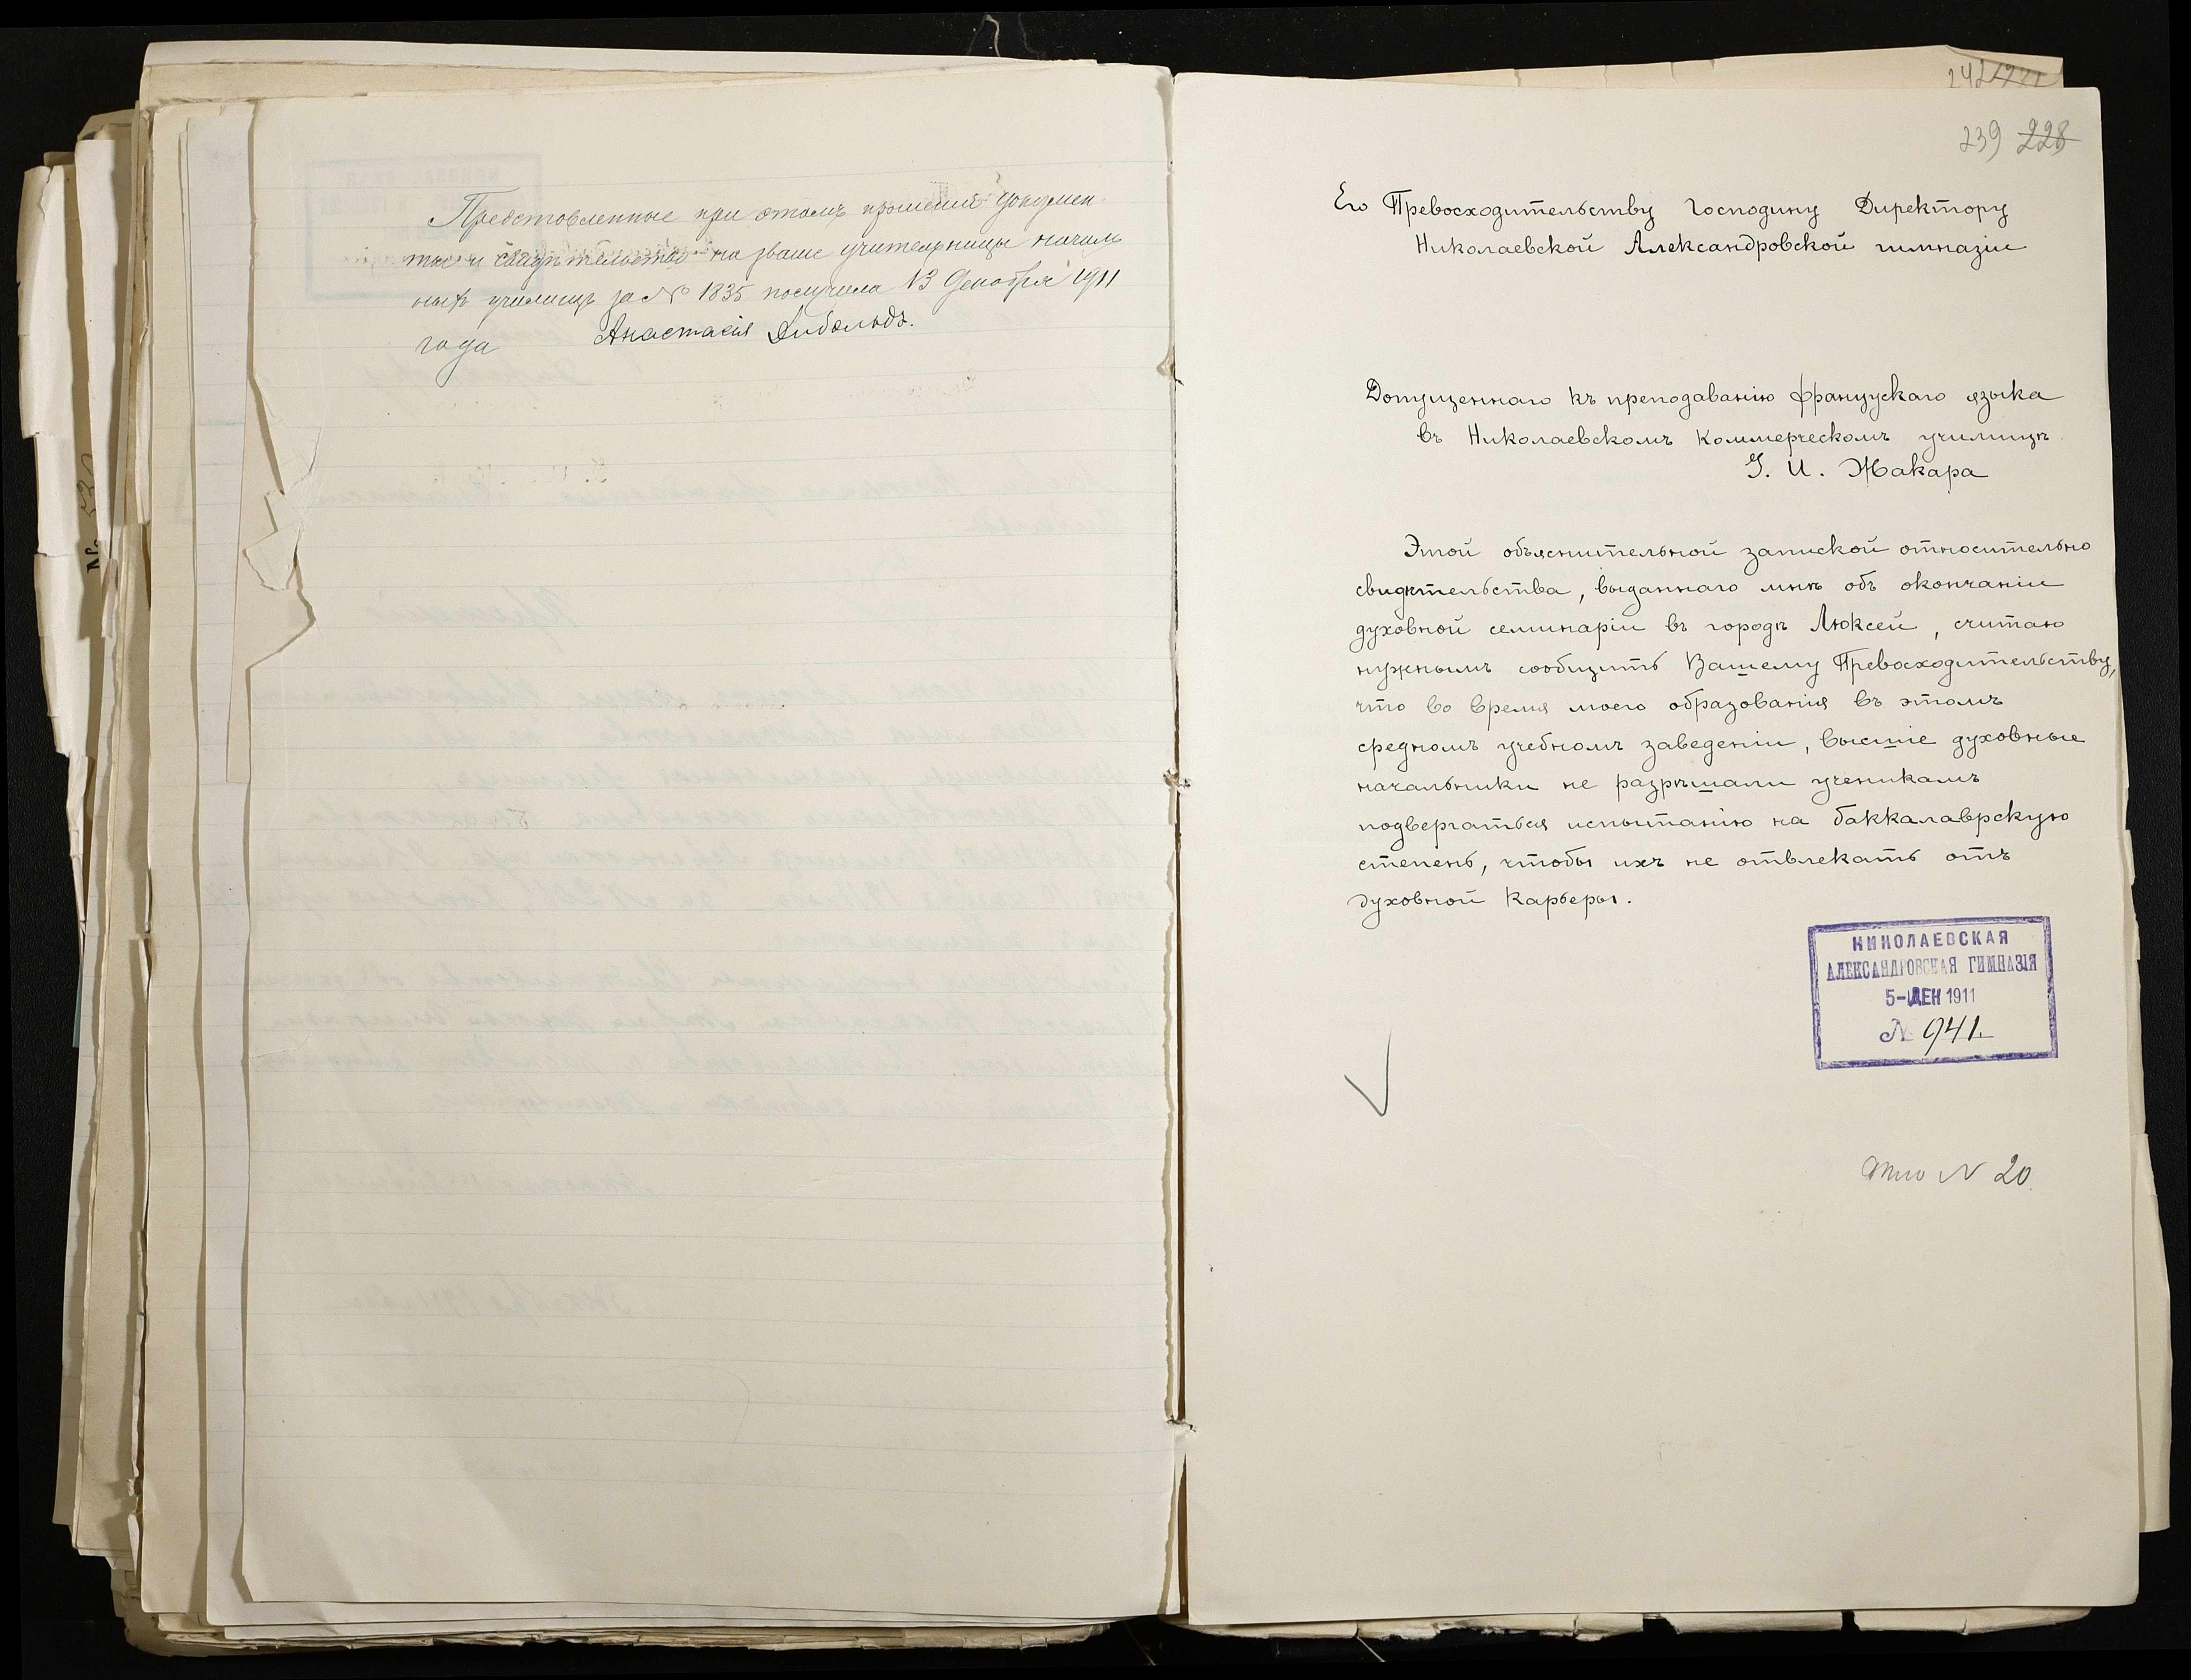 Представленные при этомъ прошеніи докумен
ты и свидѣтельство на званіе учительницы началь
ныхъ училищъ за № 1835 получила 13 Декабря 1911
года Анастасія
242
239 228
Его Превосходительству Господину Директору
Николаевской Александровской гимназіи
Допущеннаго къ преподаванію француского языка
въ Николаевскомъ Коммерческомъ училищѣ.
И. Жакара
Этой объяснительной запиской относительно
свидѣтельства, выданнаго мнѣ объ окончаніи
духовной семинаріи въ городѣ Люксей, считаю
нужнымъ сообщить Вашему Превосходительству,
что во время моего образованія въ этомъ
среднемъ учебномъ заведеніи, высшіе духовные
начальники не разрѣшали ученикамъ
подвергаться испытанію на баккалаврскую
степень, чтобы ихъ не отвлекать отъ
духовной Карьеры.
НИКОЛАЕВСКАЯ
АЛЕКСАНДРОВСКАЯ ГИМНАЗІЯ
5-ДЕК 1911
№ 941.
N 20